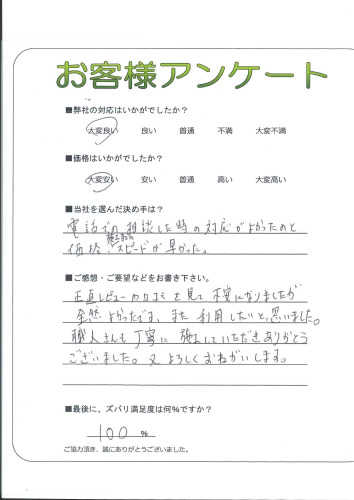 お客様アンケート
■弊社の対応はいかがでしたか?
大変良い 良い 普通 不満 大変不満
■価格はいかがでしたか?
大変安い 安い 普通 高い 大変高い
■当社を選んだ決め手は?
電話での相談した時の対応がよかったのと
価格、施工までのスピードが早かった。
■ご感想・ご要望などをお書き下さい。
正直レビューや口コミを見て不安になりましたが
全然よかったです。また利用したいと思いました。
職人さんも丁寧に施工していただきありがとう
ございました。又よろしくおねがいします。
■最後に、ズバリ満足度は何%ですか?
100 %
ご協力頂き、誠にありがとうございました。